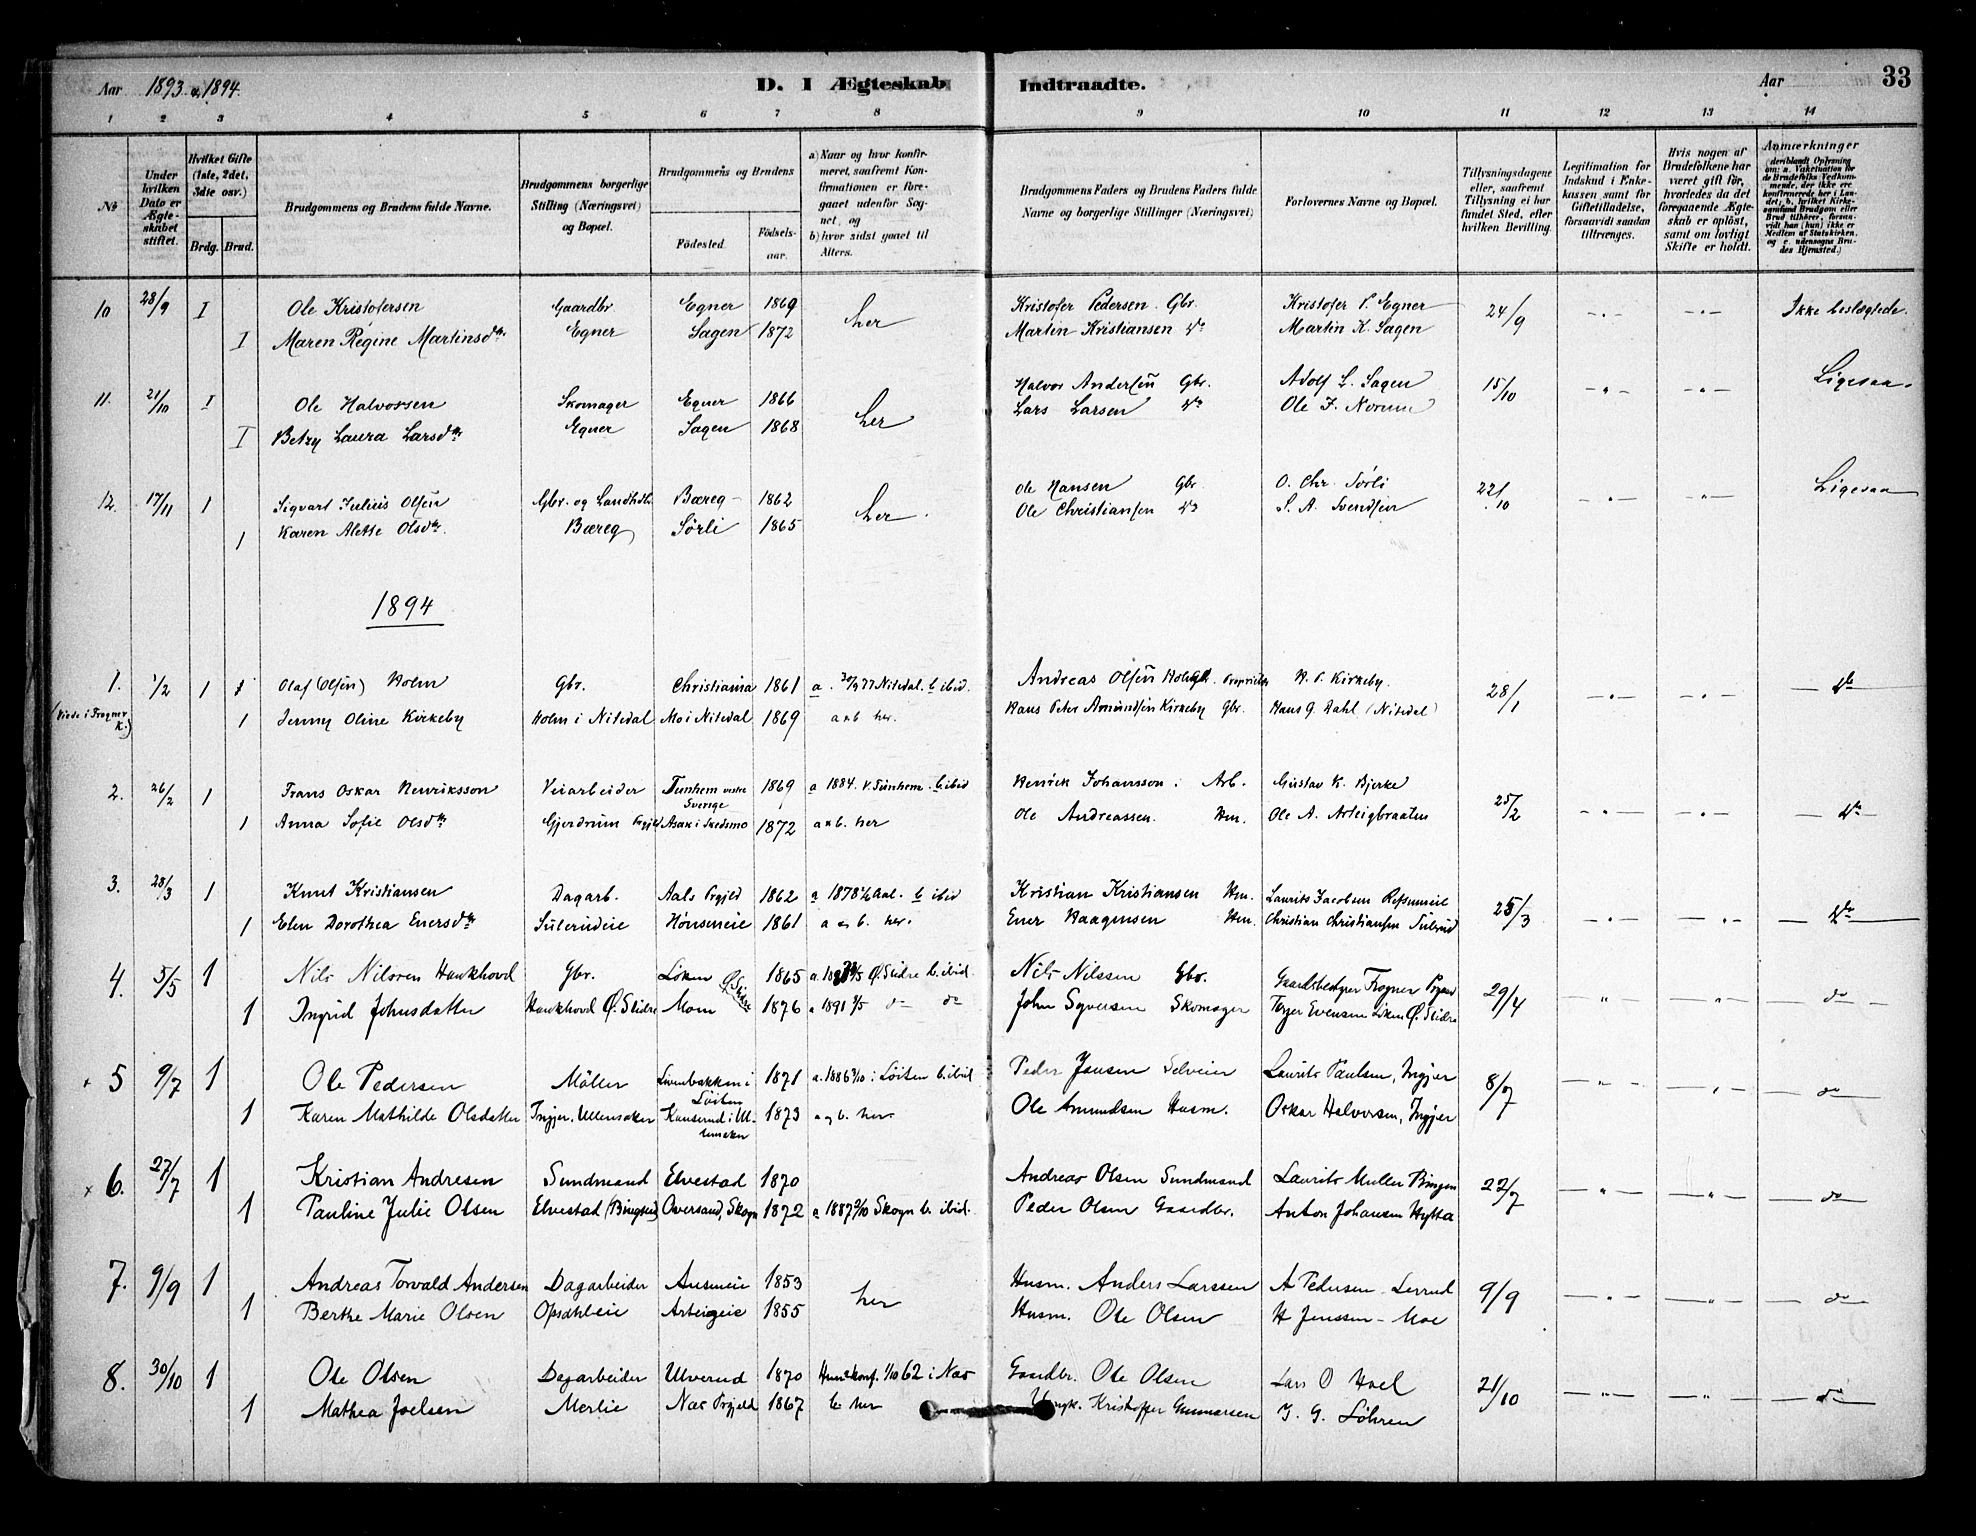 Aar 1893 & 1894. D. I Ægteskab Indtraadte. Aar 33
1 2 3 4 5 6 7 8 9 10 11 12 13 14
№
Under hvilken Dato er Ægteskabet stiftet.
Hvilket Gifte (1ste, 2det, 3die osv.)
Brdg. Brud.
Brudgommens og Brudens fulde Navne.
Brudgommens borgerlige Stilling (Næringsvei) og Bopæl.
Brudgommens og Brudens
Fødested. Fødselsaar.
a) Naar og hvor konfirmeret, saafremt Konfirmationen er foregaaet udenfor Sognet, og
b) hvor sidst gaaet til Alters.
Brudgommens Faders og Brudens Faders fulde Navne og borgerlige Stillinger (Næringsvei)
Forlovernes Navne og Bopæl.
Tillysningsdagene eller, saafremt Tillysning ei har fundet Sted, efter hvilken Bevilling.
Legitimation for Indskud i Enkekassen samt for Giftetilladelse, forsaavidt saadan tiltrænges.
Hvis nogen af Brudefolkene har været gift før, hvorledes da det foregaaende Ægteskab er opløst, samt om lovligt Skifte er holdt.
Anmærkninger (deriblandt Oplysning om: a. Vakcination for de Brudefolks Vedkommende, der ikke ere konfirmerede her i Landet, b. hvilket Kirkesamfund Brudgom eller Brud tilhører, forsaavidt han (hun) ikke er Medlem af Statskirken, og c. udensogns Brudes Hjemsted.)
10 28/9 I Ole Kristofersen Gaardbr Egner 1869 her Kristofer Pedersen Gbr. Kristofer P. Egner 24/9 —"— —"— Ikke beslægtede.
I Maren Regine Martinsdtr Egner Sagen 1872 Martin Kristiansen do Martin K. Sagen
11. 21/10 I Ole Halvorsen Skomager Egner 1866 her Halvor Andersen Gbr. Adolf L. Sagen 15/10 —"— —"— Ligesaa.
I Betzy Laura Larsdtr Egner Sagen 1868 Lars Larsen do Ole J. Norum
12. 17/11 1 Sigvart Julius Olsen Gbr. og Landhdl. Bæreg 1862 her. Ole Hansen Gbr. O. Chr. Sørli 22/10 —"— —"— Ligesaa
1 Karen Alette Olsdtr. Bæreg Sörli 1865 Ole Christiansen do S. A. Svendsen
1894
1. 1/2 1 Olaf (Olsen) Holm Gbr. Christiania 1861 a. 30/9 77 Nitedal. b ibid. Andreas Olsen Holm Proprietær H. P. Kirkeby. 28/1 —"— —"— do
(Viede i Frogner K.) 1 Jenny Oline Kirkeby Holm i Nitedal Mo i Nitedal 1869 a & b her. Hans Peter Amundsen Kirkeby Gbr. Hans G. Dahl (Nitedal)
2. 26/2 1 Frans Oskar Henriksson Veiarbeider Tunhem vestre Sverige 1869 a 1884. V. Tunhem. b. ibid Henrik Johansson. Arb. Gustav K. Bjerke 25/2 —"— —"— do
1 Anna Sofie Olsdtr Gjerdrum Prgjld Asak i Skedsmo 1872 a & b. her Ole Andreassen. Hm. Ole A. Arteigbraaten
3. 28/3 1 Knut Kristiansen Dagarb. Aals Prgjld 1862 a 1878 Aal. b ibid Kristian Kristiansen Hm. Laurits Jacobsen 25/3 —"— —"— do
1 Elen Dorothea Enersdtr Sulerudeie Hønseneie 1861 a & b. her. Ener Haagensen Hm. Christian Christiansen Sulerud
4. 5/5 1 Nils Nilssen Haukhovd Gbr. Løken Ø. Slidre 1865 Ø. Slidre b. ibid. Nils Nilssen Gbr. Gaardsbestyrer Frogner Prgaard 29/4 " " do
1 Ingrid Johnsdatter Haukhovd Ø. Slidre Mom 1876 a 1891 do do John Syversen Skomager Terjer Evensen Løken Ø. Slidre
5 9/7 1 Ole Pedersen Möller Livenbakken i Löiten 1871 a. 1886 i Löiten b. ibid Peder Jansen Selveier Laurits Paulsen, Ingjer 8/7 —"— " do
1 Karen Mathilde Olsdatter Ingjer. Ullensaker Kauserud i Ullensaker 1873 a og b. her. Ole Amundsen Husm. Oskar Halvorsen, Ingjer
x 6. 27/7 1 Kristian Andresen Sundmand Elvestad 1870 Andreas Olsen Sundmand Laurits Muller Bingen 22/7 —"— —"— do
1 Pauline Julie Olsen Elvestad (Bingsfos) Oversand, Skogn 1872 a 1887 2/10 Skogn b. ibid. Peder Olsen Gaardbr. Anton Johansen Hytta
7. 9/9 1 Andreas Torvald Andersen Dagarbeider Ausmeie 1853 her Husm. Anders Larssen A Pedersen Lerrud 9/9 —"— —"— do
1 Berthe Marie Olsen Opsahleie Arteigeie 1855 Husm. Ole Olsen H Jenssen - Moe
8. 30/10 1 Ole Olsen Dagarbeider Ulverud 1870 Hun konf. 1/10 62 i Næs Gaardbr. Ole Olsen Lars O Hoel 21/10 —"— —"— do
1 Mathea Joelsen Merlie Næs Prgjeld 1867 b her Kristoffer Gunnarsen J. G. Löhren